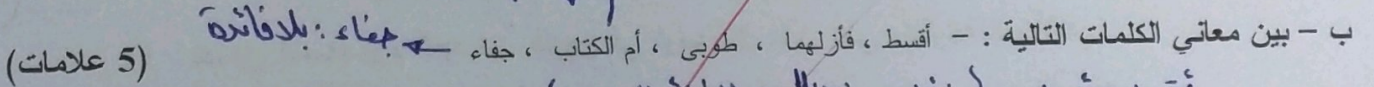 ب - بين معاني الكلمات التالية : - أقسط ، فأزلهما ، طوبى ، أم الكتاب ، جفاء ← جفاء : بلا فائدة
(5 علامات)